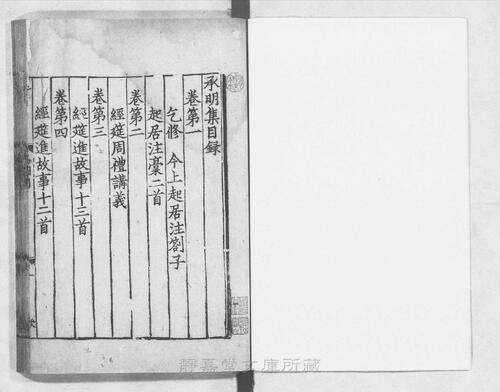 承明集目録
卷第一
乞修　今上起居注劄子
起居注藁二首
卷第二
經筵周禮講義
卷第三
經筵進故事十三首
卷第四
經筵進故事十二首
静嘉堂文庫所藏